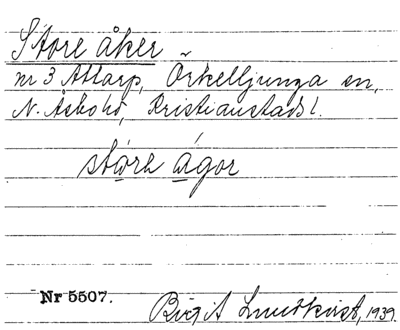 Store åker
nr 3 Attarp, Örkelljunga sn,
N. Åsbo hd, Kristianstads l.
störh ágor
Nr 5507.
Birgit Lundkvist, 1939.